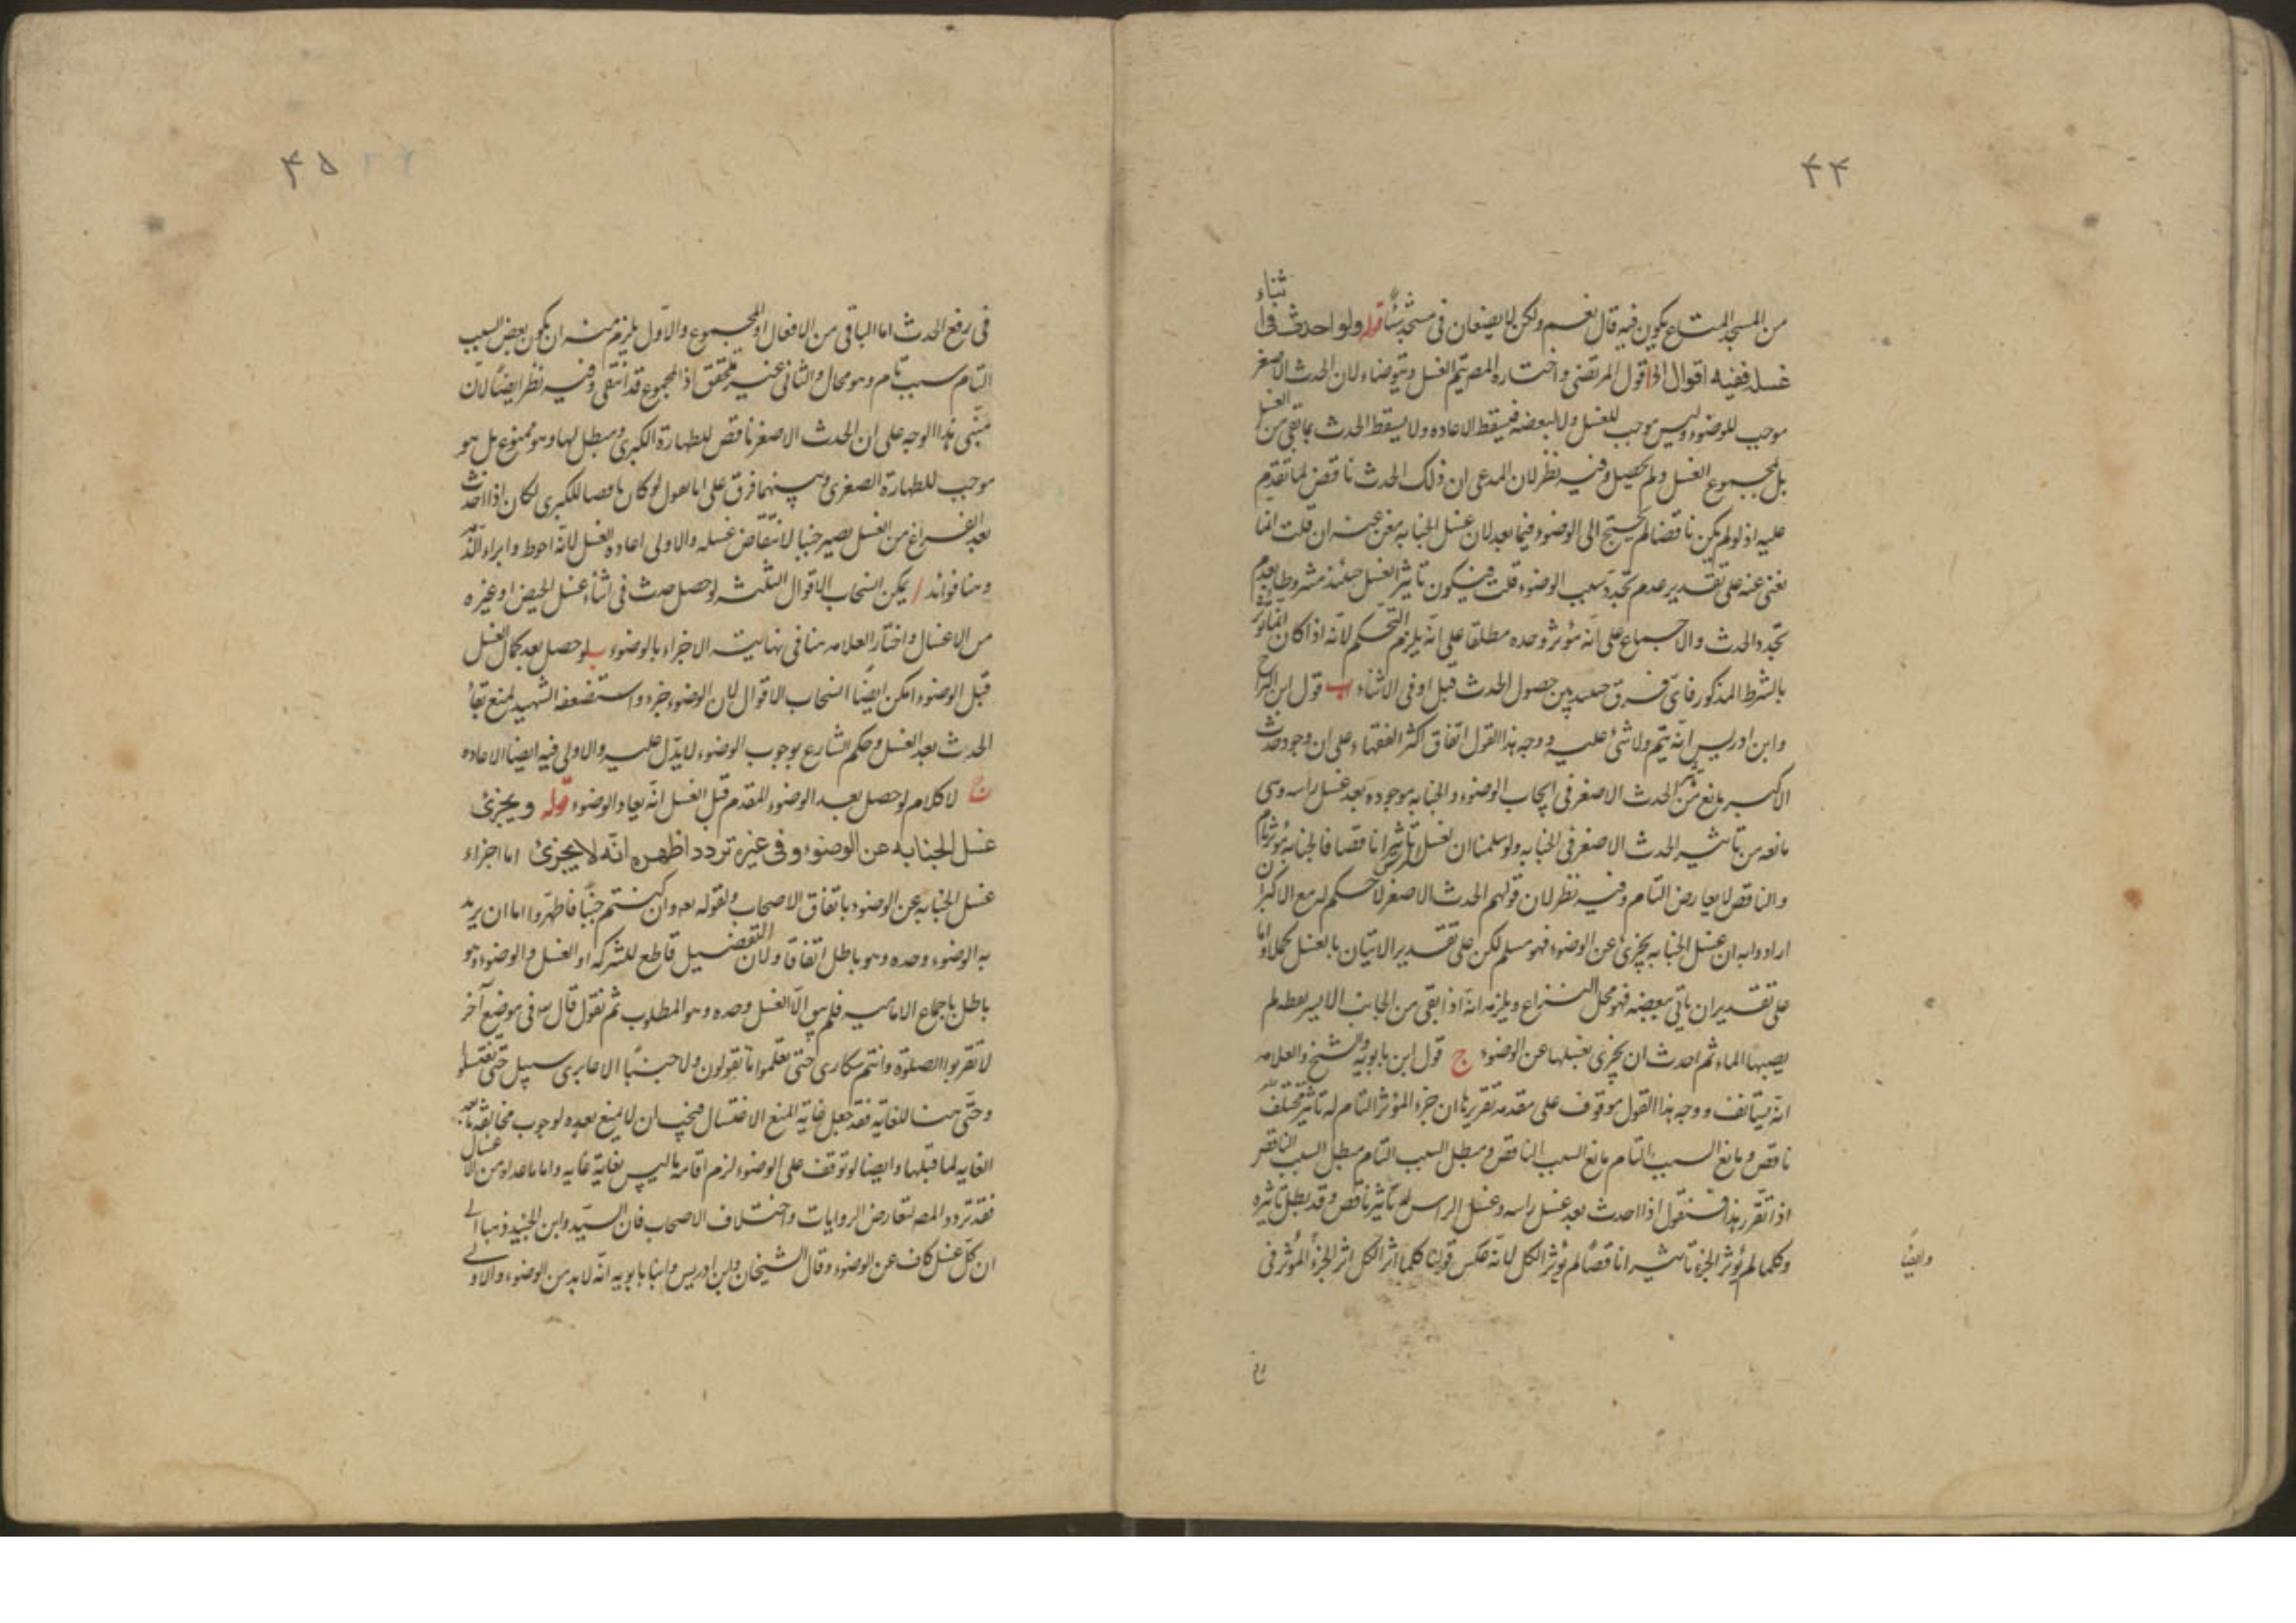 ۴۴
من المسجد المتاع يكون فيه قال نعم ولكن لا يضعان في مسجد شيئا قوله ولو احدث في اثناء
غسله ففيه اقوال ا قول المرتضى واختاره المصر يتم الغسل ويتوضاء لان الحدث الاصغر
موجب للوضوء وليس موجب للغسل ولا لبعضه فيسقط الاعاده ولا يسقط الحدث بما بقي من الغسل
بل بمجموع الغسل ولم يحصل وفيه نظر لان المدعى ان ذلك الحدث ناقض لما تقدم
عليه اذ لو لم يكن ناقضا لم يحتج الى الوضوء فيما بعد لان غسل الجنابه مغن عنه ان قلت انما
يغنى عنه على تقدير عدم تجدد سبب الوضوء قلت فيكون تاثير الغسل حينئذ مشروطا بعدم
تجدد الحدث والاجماع على انه مؤثر وحده مطلقا على انه يلزم التحكم لانه اذا كان انما يؤثر
بالشرط المذكور فاى فرق حينئذ بين حصول الحدث قبل او في الاثناء ب قول ابن البراج
وابن ادريس انه يتم ولا شئ عليه ووجه هذا القول اتفاق اكثر الفقهاء على ان وجود حدث
الاكبر مانع من تاثير الحدث الاصغر في ايجاب الوضوء والجنابه موجوده بعد غسل راسه وهى
مانعه من تاثير الحدث الاصغر في الجنابه ولو سلمنا ان لغسل الراس تاثيرا ناقصا فالجنابه مؤثر تام
والناقص لا يعارض التام وفيه نظر لان قولهم الحدث الاصغر لا حكم له مع الاكبر ان
ارادوا به ان غسل الجنابه يجزئ عن الوضوء فهو مسلم لكن على تقدير الاتيان بالغسل كملا واما
على تقدير ان ياتى ببعضه فهو محل النزاع ويلزمه انه اذا بقى من الجانب الايسر نقطه لم
يصبها الماء ثم احدث ان يجزى بغسلها عن الوضوء ج قول ابن بابويه والشيخ والعلامه
انه يستانف ووجه هذا القول موقوف على مقدمه تقريرها ان جزء المؤثر التام له تاثير مختلف
ناقص ومانع السبب التام مانع السبب الناقص ومبطل السبب التام مبطل السبب الناقص
اذا تقرر هذا فنقول اذا احدث بعد غسل راسه وغسل الراس له تاثير ناقص وقد بطل تاثيره
وكلما لم يؤثر الجزء تاثيرا ناقصا لم يؤثر الكل لانه عكس قولنا كلما اثر الكل اثر الجزء المؤثر في
وايضا
۴۵
في رفع الحدث اما الباقى من الافعال او المجموع والاول يلزم منه ان يكون بعض السبب
التام سبب تام وهو محال والثانى غير متحقق اذ المجموع قد انتفى وفيه نظر ايضا لان
مبنى هذا الوجه على ان الحدث الاصغر ناقض للطهارة الكبرى ومبطل لها وهو ممنوع بل هو
موجب للطهارة الصغرى وبينهما فرق على انا نقول لو كان ناقضا للكبرى لكان اذا احدث
بعد الفراغ من الغسل يصير جنبا لانتقاض غسله والاولى اعاده الغسل لانه احوط وابراء للذمه
وهنا فوائد ا يمكن انسحاب الاقوال الثلثه لو حصل حدث في اثناء غسل الحيض او غيره
من الاغسال واختار العلامه هنا في نهايته الاجزاء بالوضوء ب لو حصل بعد كمال الغسل
قبل الوضوء امكن ايضا انسحاب الاقوال لان الوضوء جزء واستضعفه الشهيد لمنع بقاء
الحدث بعد الغسل وحكم الشارع بوجوب الوضوء لا يدل عليه والاولى فيه ايضا الاعاده
ج لا كلام لو حصل بعد الوضوء المقدم قبل الغسل انه يعاد الوضوء قوله ويجزئ
غسل الجنابه عن الوضوء وفي غيره تردد اظهره انه لا يجزئ اما اجزاء
غسل الجنابه عن الوضوء باتفاق الاصحاب ولقوله تعه وان كنتم جنبا فاطهروا اما ان يريد
به الوضوء وحده وهو باطل اتفاقا ولان التفصيل قاطع للشركه او الغسل والوضوء وهو
باطل باجماع الاماميه فلم يبق الا الغسل وحده وهو المطلوب ثم نقول قال تعه في موضع آخر
لا تقربوا الصلوة وانتم سكارى حتى تعلموا ما تقولون ولا جنبا الا عابرى سبيل حتى تغتسلوا
وحتى هنا للغايه فقد جعل غاية المنع الاغتسال فيجب ان لا يمنع بعده لوجوب مخالفه ما بعد
الغايه لما قبلها وايضا لو توقف على الوضوء لزم اقامه ما ليس بغاية غايه واما ما عداه من الاغسال
فقد تردد المصر لتعارض الروايات واختلاف الاصحاب فان السيد وابن الجنيد ذهبا الى
ان كل غسل كاف عن الوضوء وقال الشيخان وابن ادريس وابنا بابويه انه لا بد من الوضوء والاولى